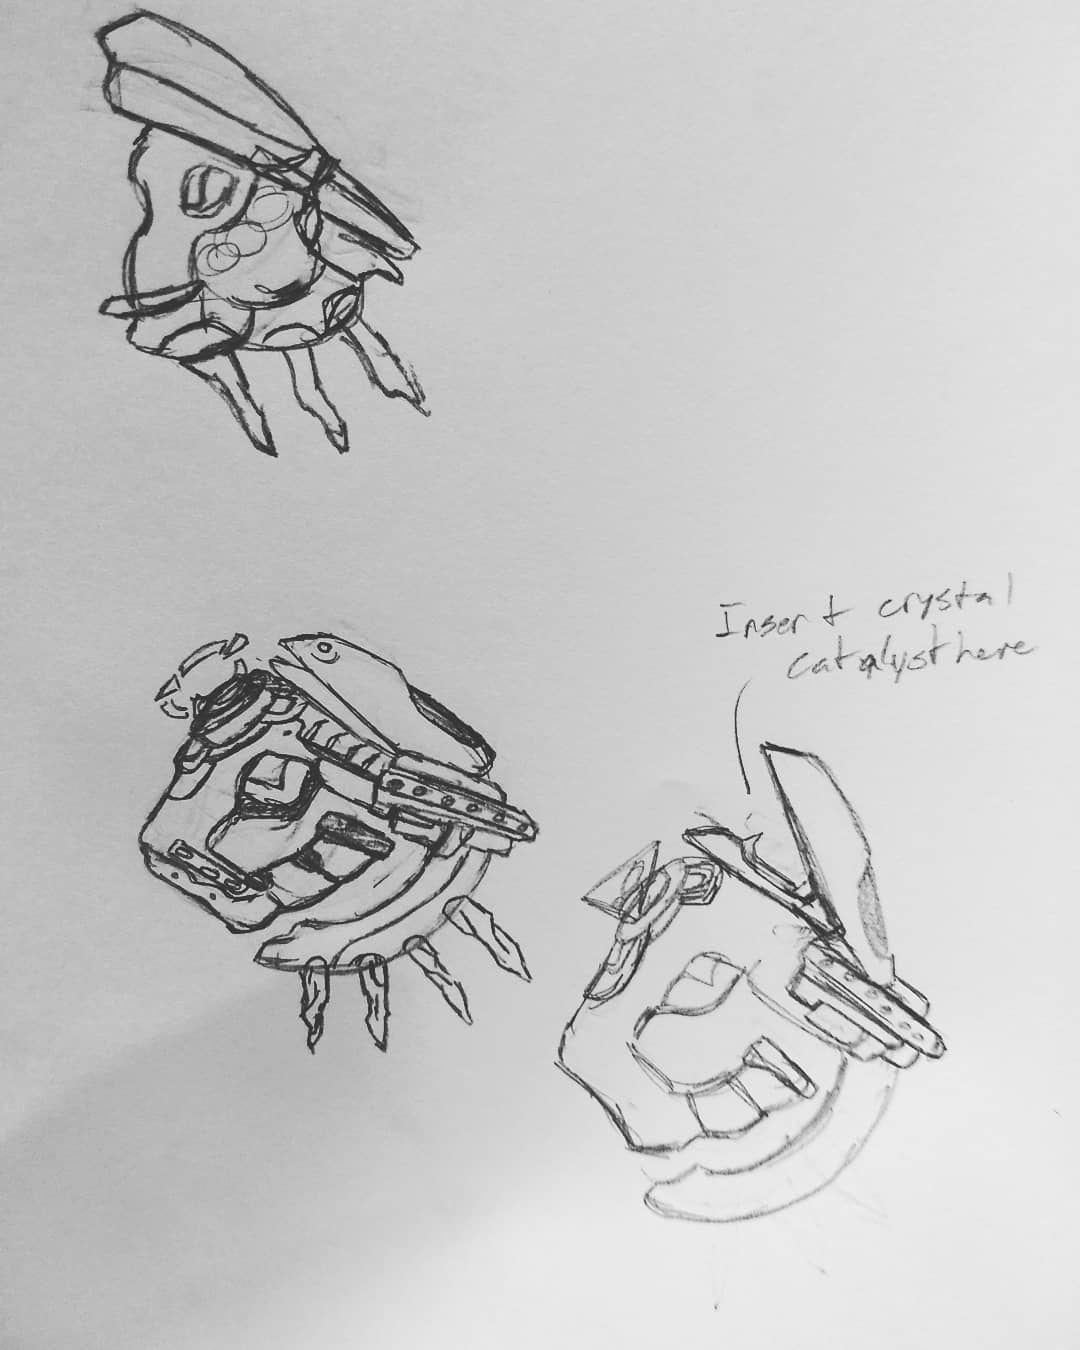 Insert crystal
catalyst here